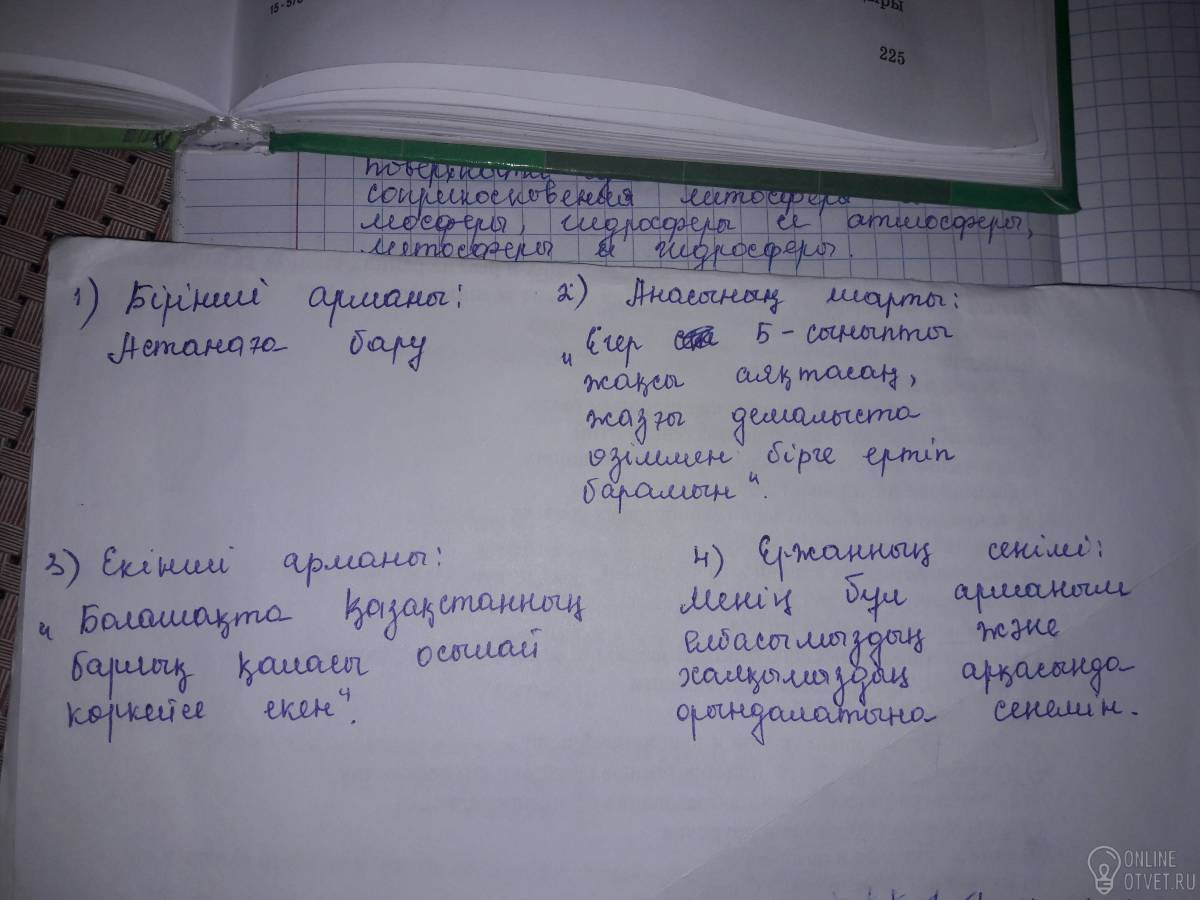 15-578
225
соприкосновения литосферы
мосферы, гидросферы и атмосферы,
литосферы и гидросферы.
1) Бірінші арманы:
Астанаға бару
2) Анасының шарты:
"Егер 5-сыныпты
жақсы аяқтасаң,
жазғы демалыста
өзіммен бірге ертіп
барамын".
3) Екінші арманы:
"Болашақта Қазақстанның
барлық қаласы осылай
көркейсе екен".
4) Ержанның сенімі:
Менің бұл арманым
елбасымыздың және
халқымыздың арқасында
орындалатына сенемін.
ONLINE
OTVET.RU